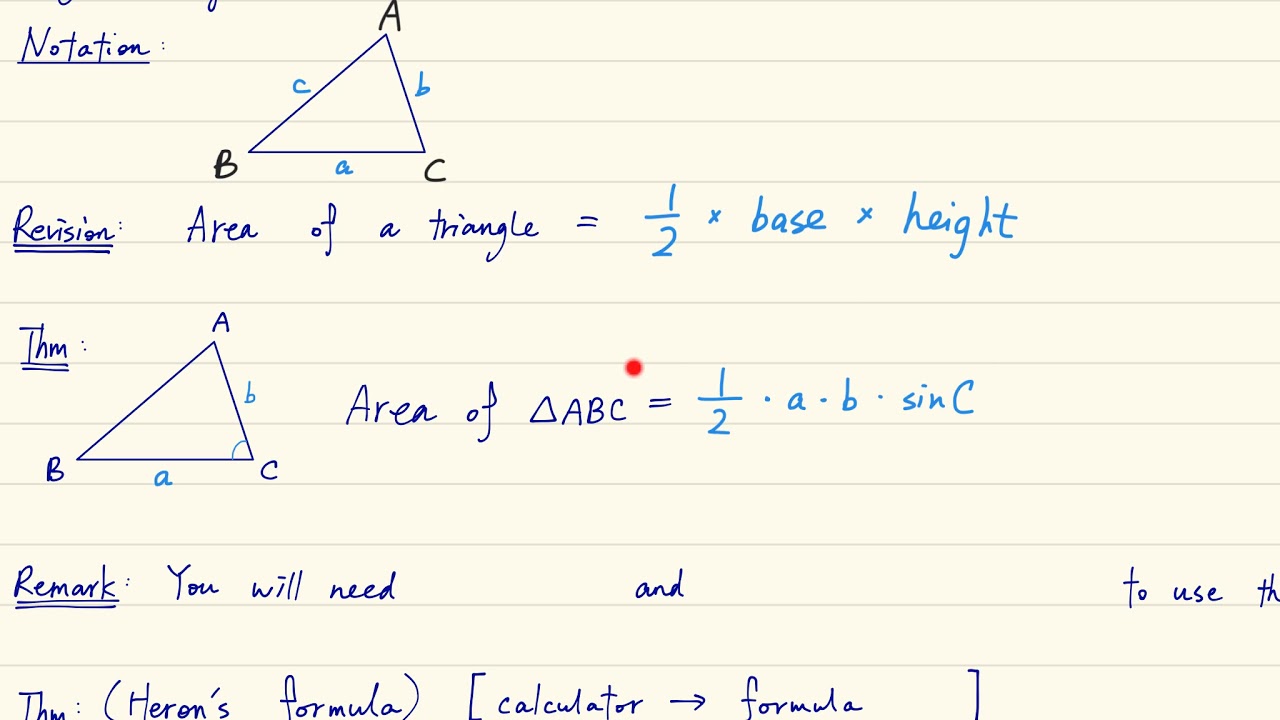 A
Notation:
c
b
B
a
C
Revision: Area of a triangle = 1/2 × base × height
A
Thm:
b
Area of △ABC = 1/2 · a · b · sin C
B
a
C
Remark: You will need and to use th
Thm: (Heron's formula) [calculator → formula ]